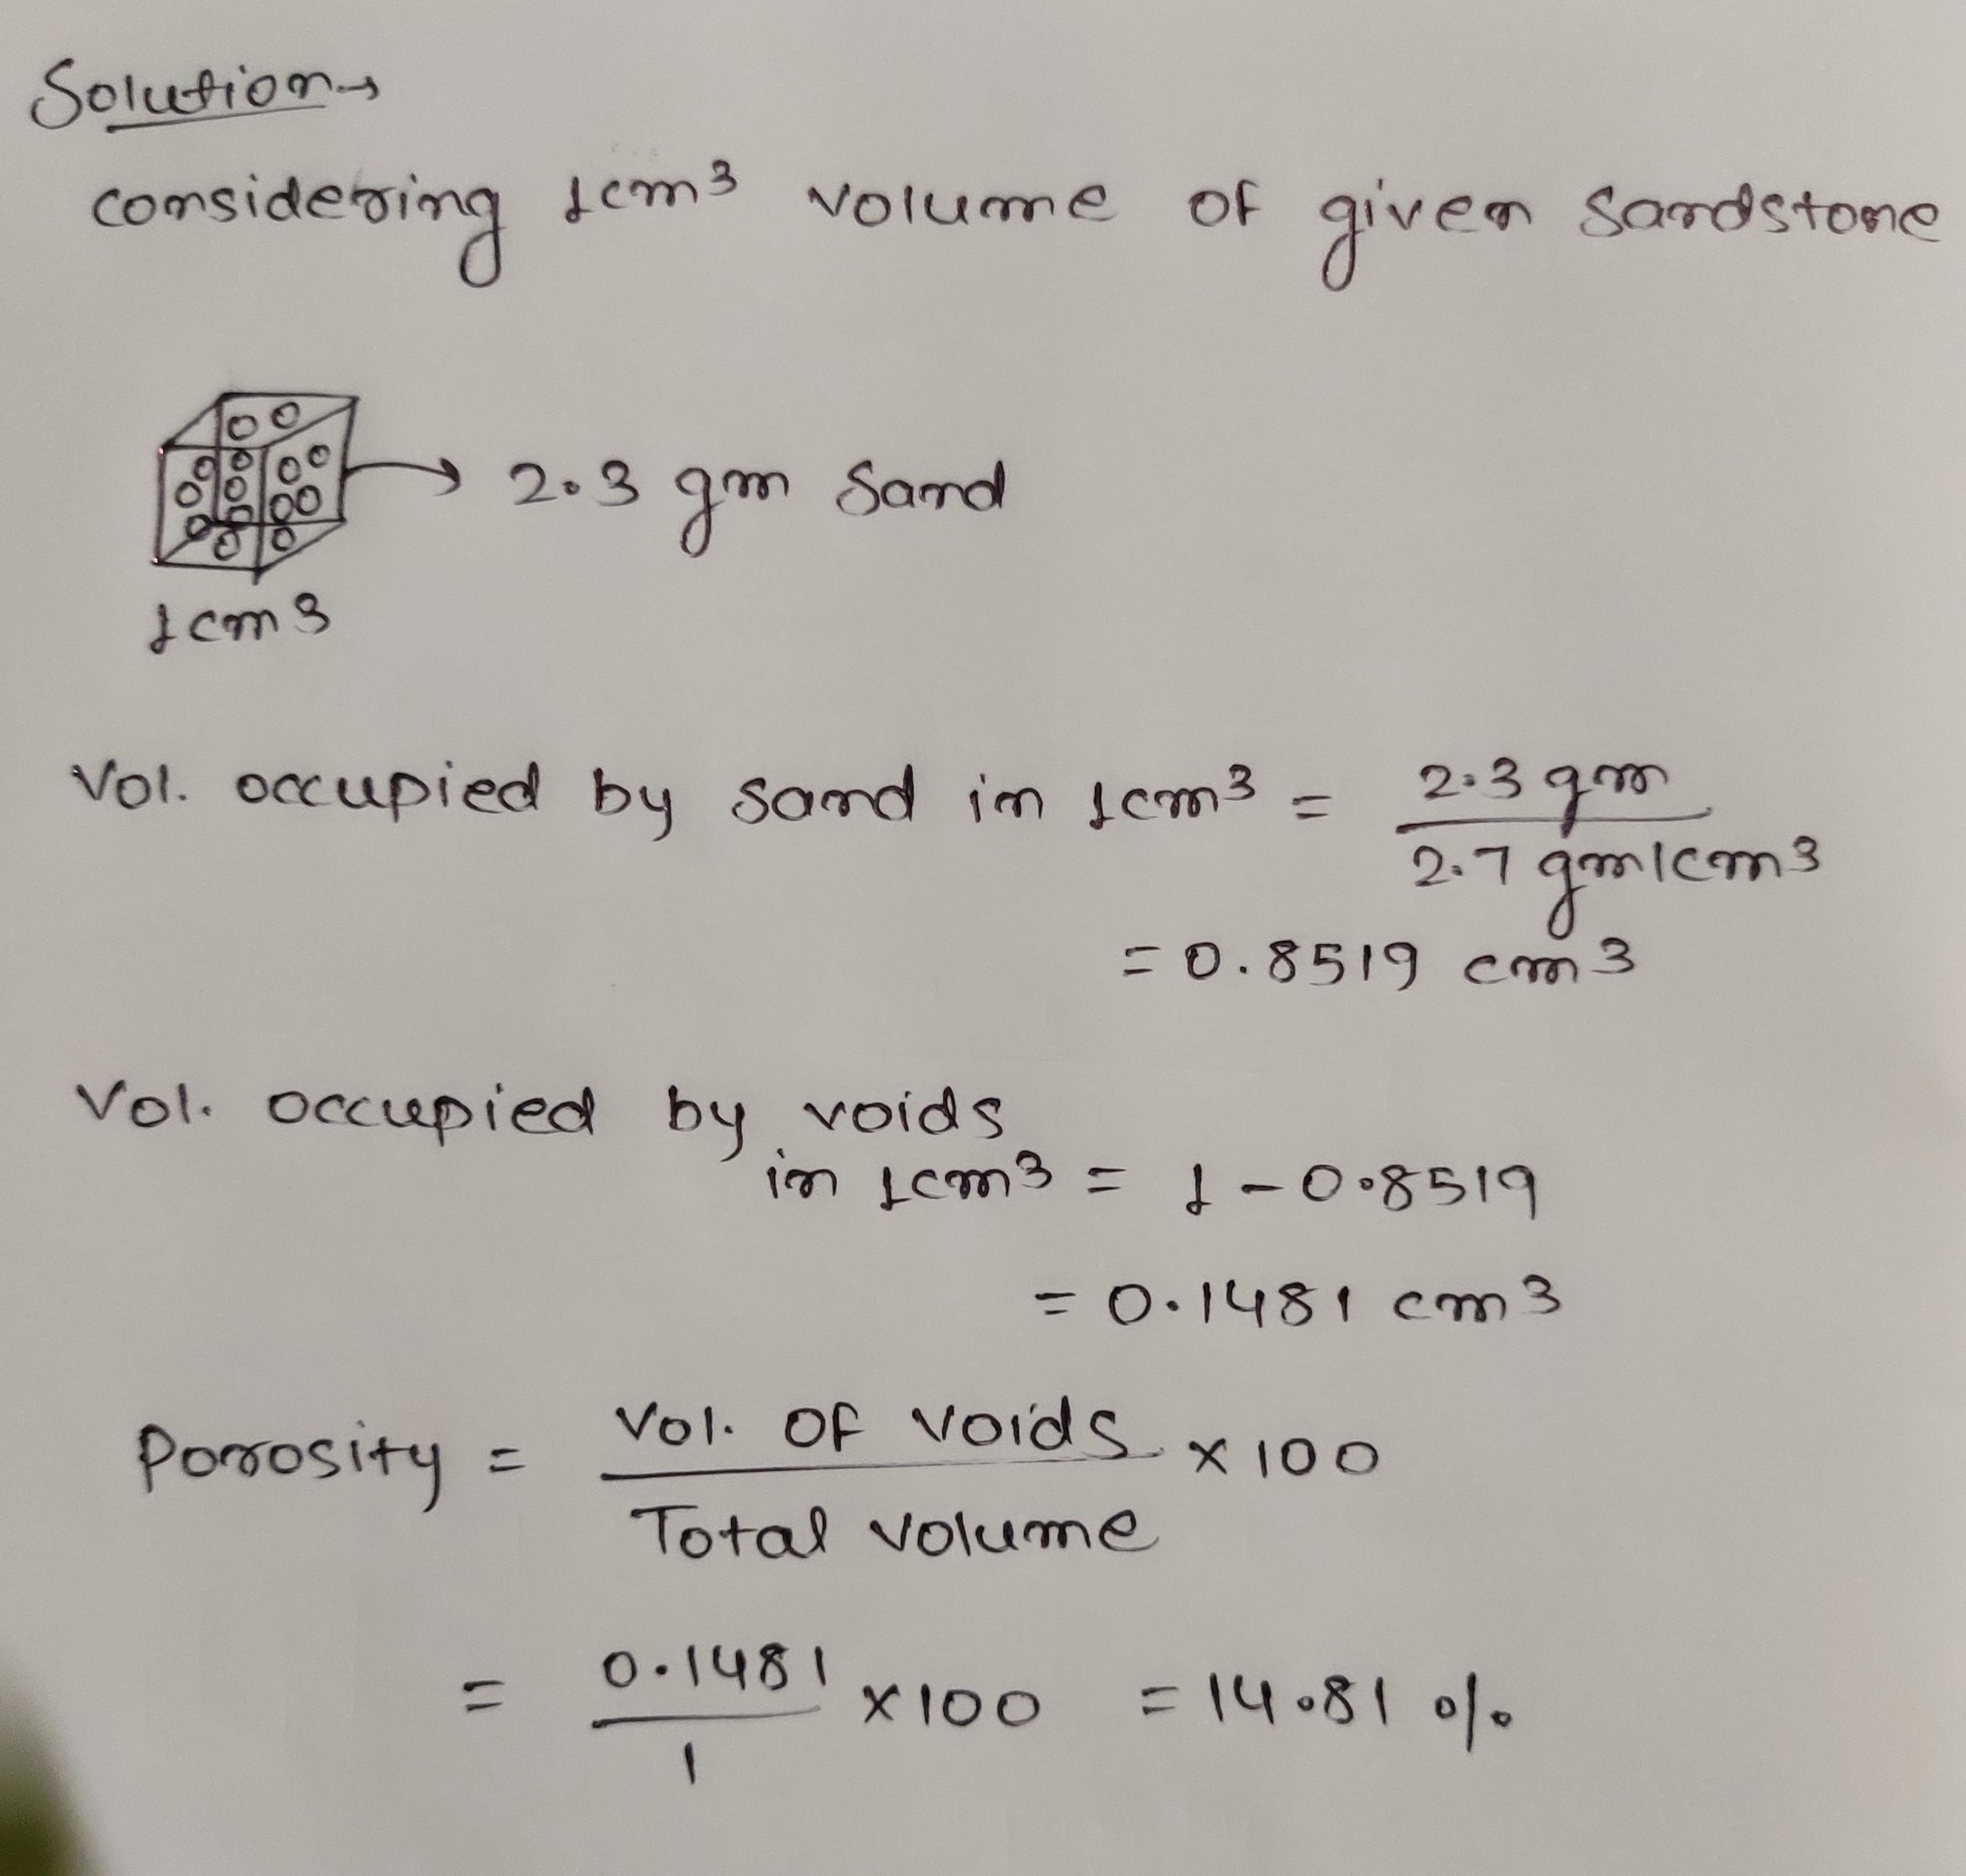 Solution→
considering 1cm3 volume of given sandstone
→ 2.3 gm sand
1cm3
Vol. occupied by sand in 1cm3 = 2.3 gm
2.7 gm/cm3
= 0.8519 cm3
Vol. occupied by voids
in 1cm3 = 1 - 0.8519
= 0.1481 cm3
Porosity = Vol. of voids × 100
Total volume
= 0.1481 ×100 = 14.81 %
1